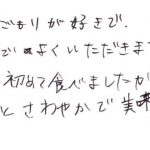 ごもりが好きで、
で よくいただきま
初めて食べましたが
とさわやかで美味